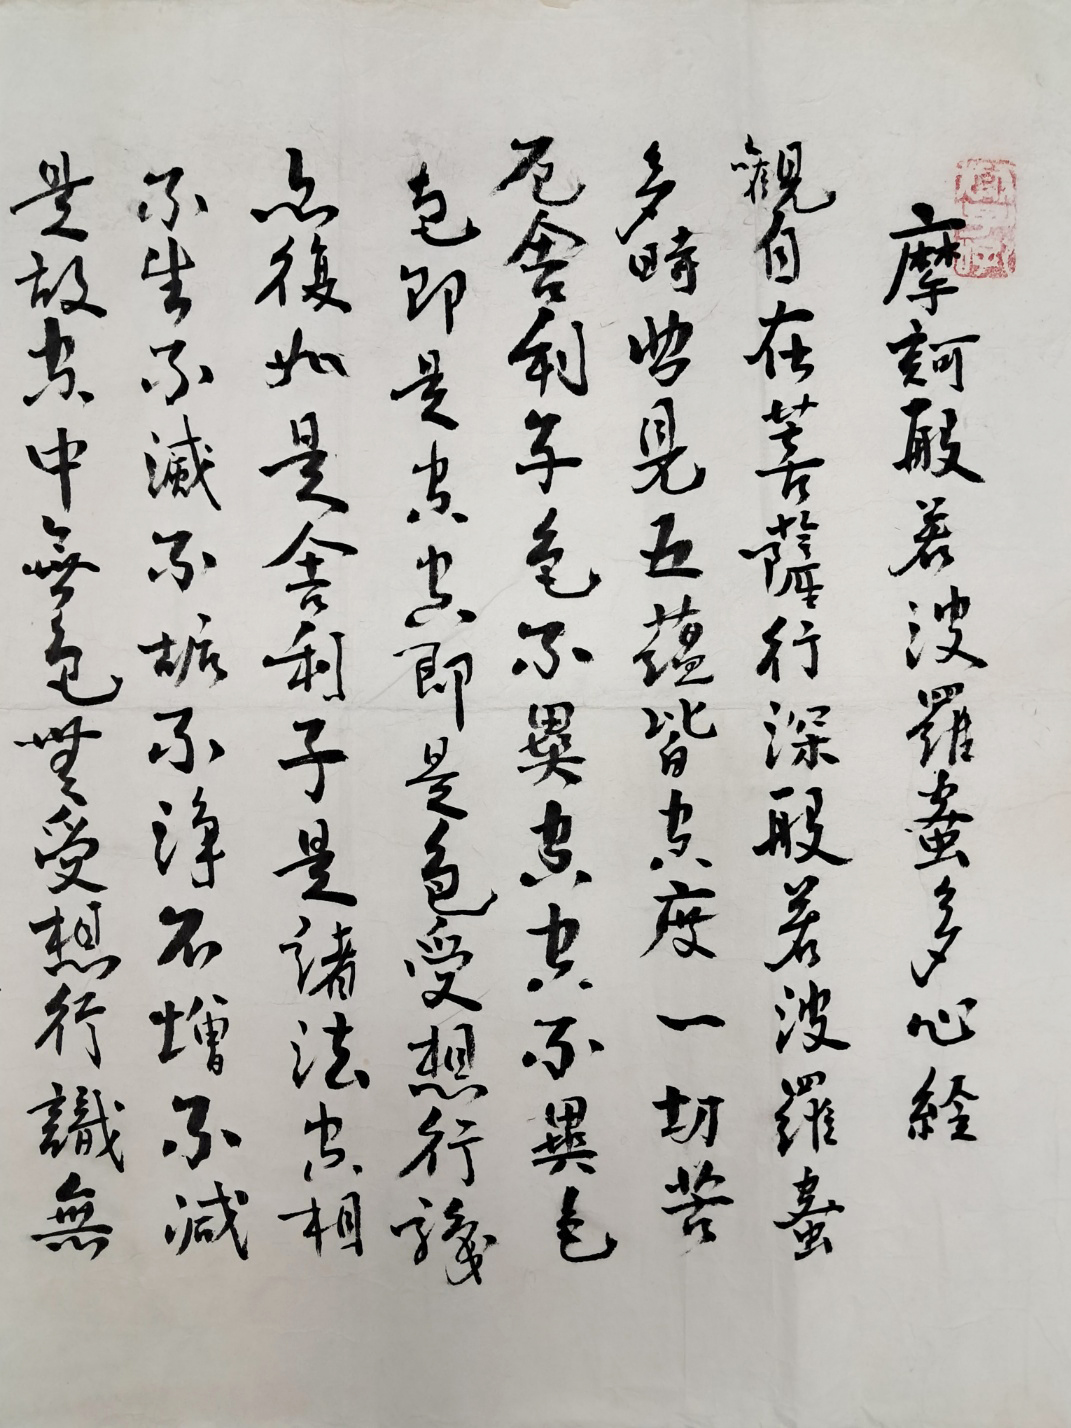 摩訶般若波羅蜜多心経
觀自在菩薩行深般若波羅蜜
多時照見五蘊皆空度一切苦
厄舍利子色不異空空不異色
色即是空空即是色受想行識
亦復如是舍利子是諸法空相
不生不滅不垢不淨不增不減
是故空中無色無受想行識無